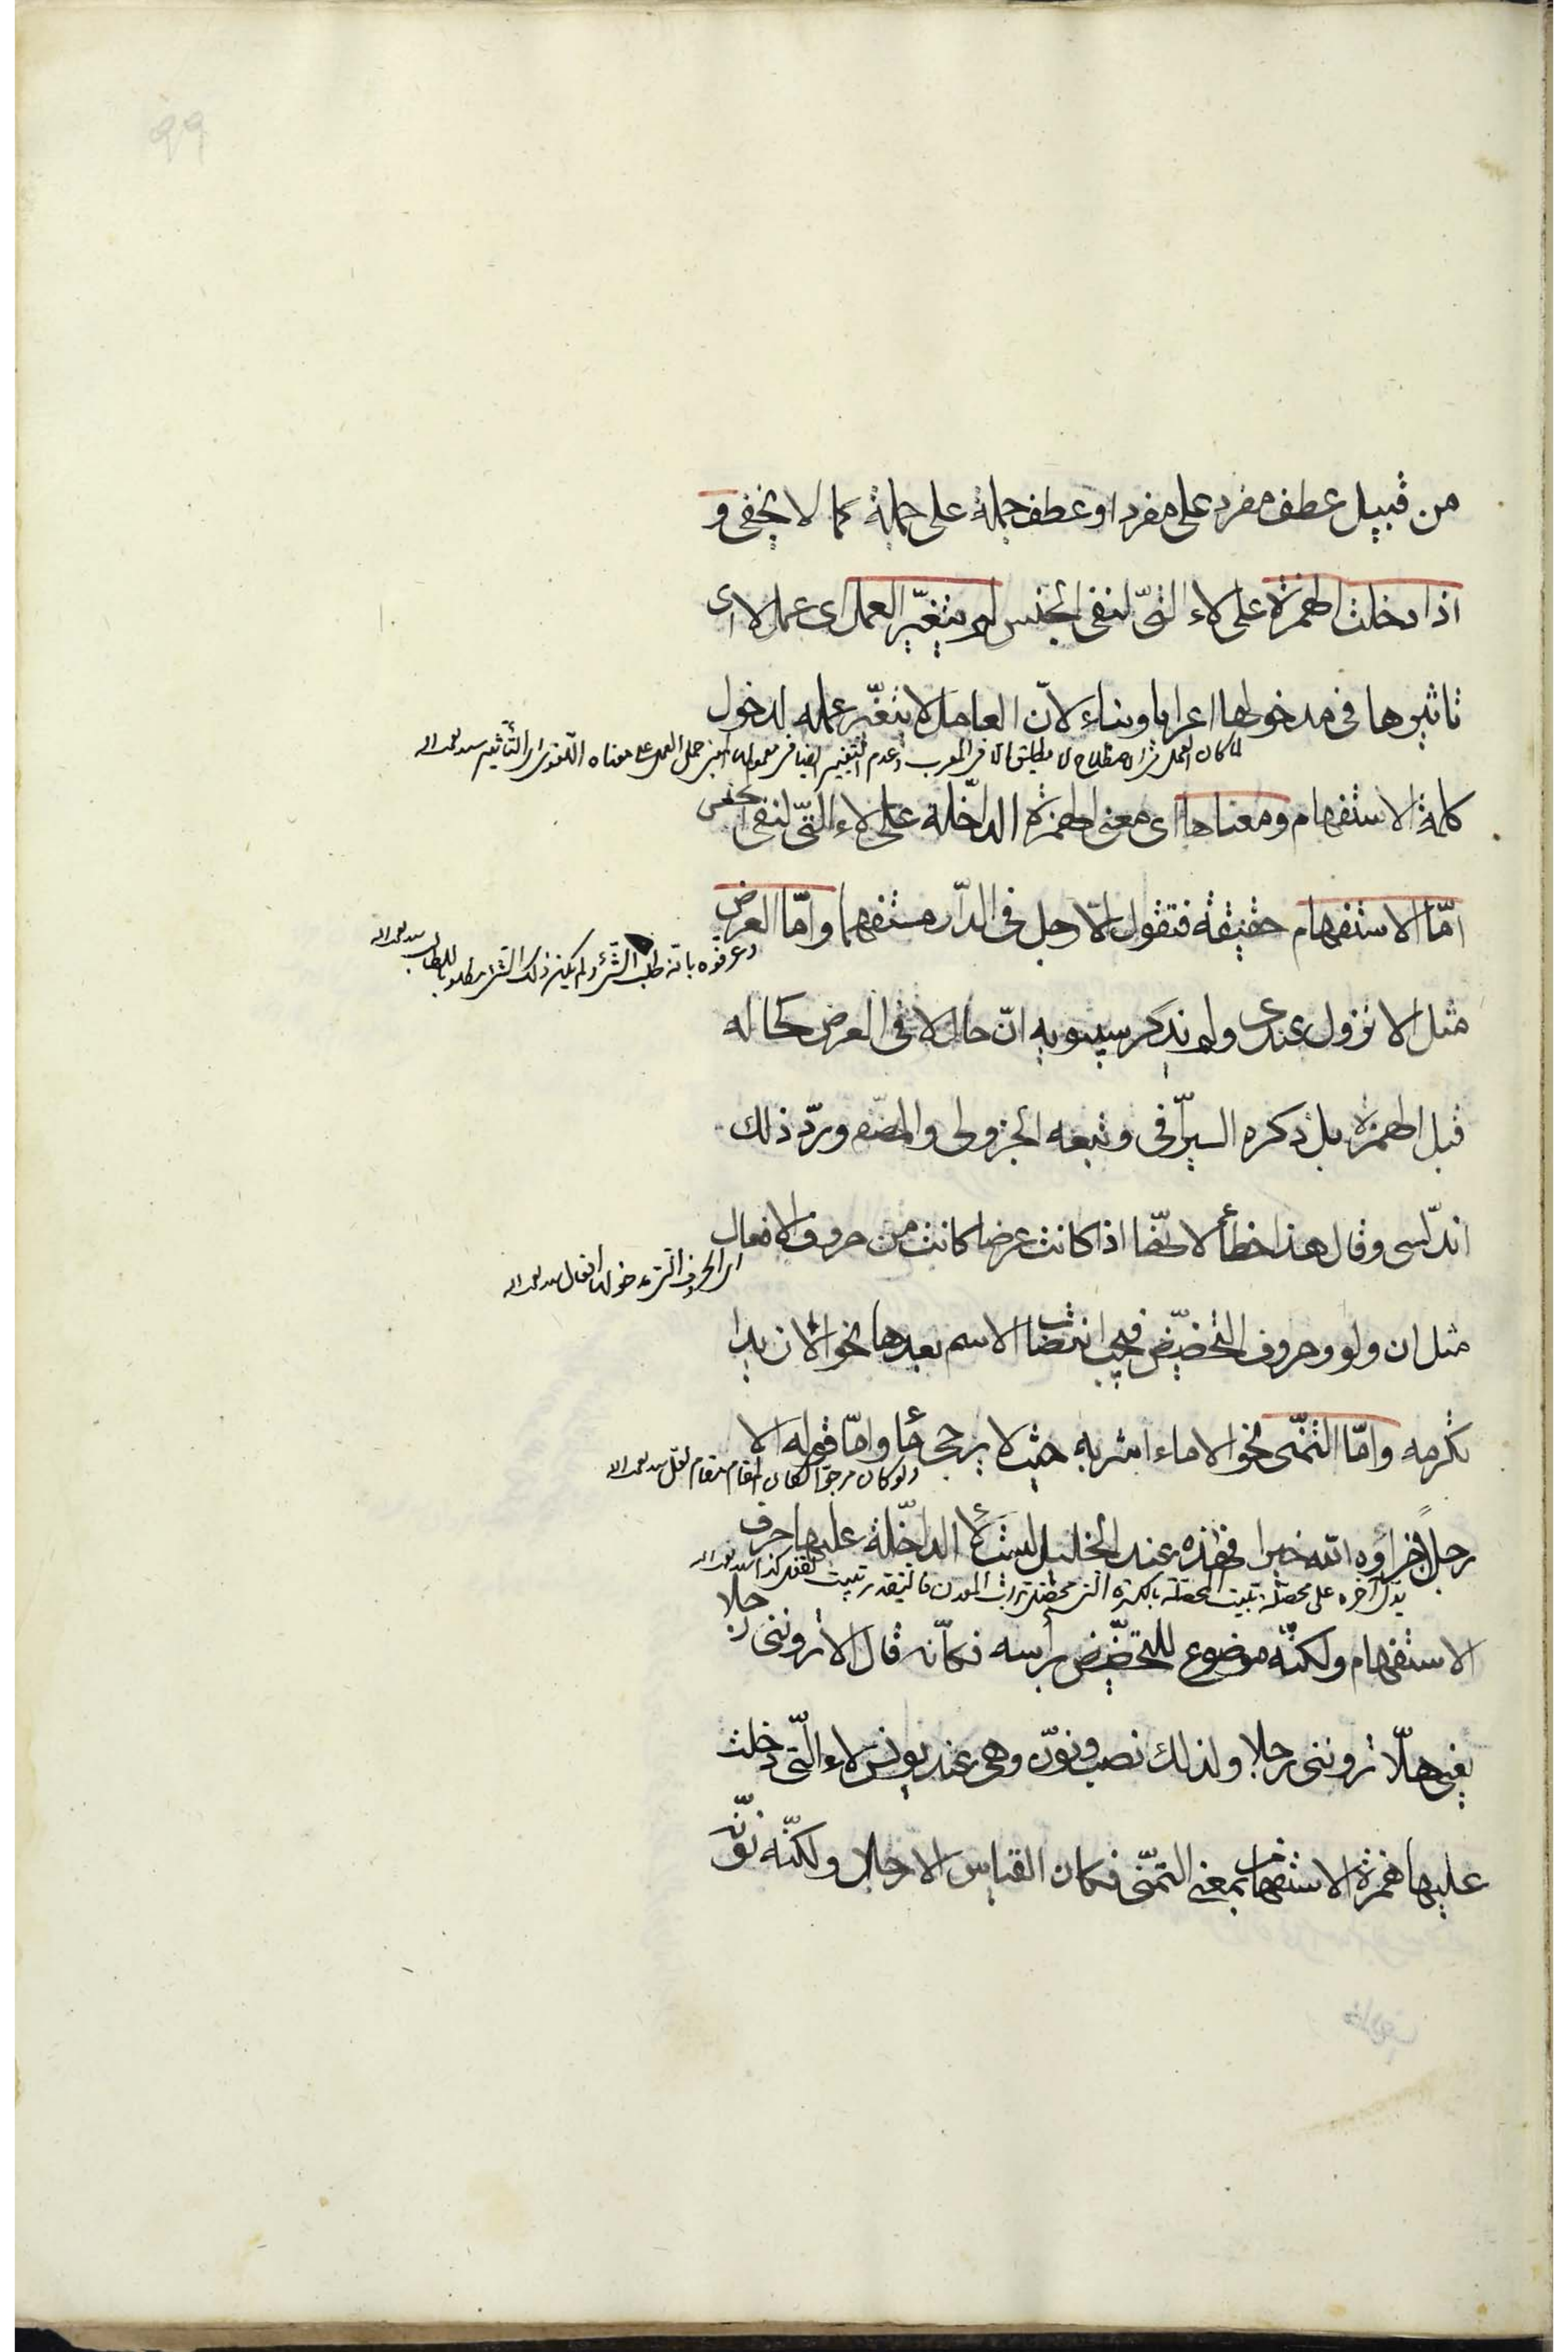 ٩٩
من قبيل عطف مفرد على مفرد او عطف جملة على جملة كما لا يخفى و
اذا دخلت الهمزة على لاء التى لنفى الجنس لم يتغيّر العمل اى عمل لا اى
تاثيرها فى مدخولها اعرابا وبناء لانّ العامل لا يتغيّر عمله لدخول
لما كان العمل فى الاصطلاح لا يطلق الا فى المعرب وعدم التغيير ايضا فى معموله المبنى حمل العمل على معناه اللغوى اى التأثير
كلمة الاستفهام ومعناها اى معنى الهمزة الداخلة على لاء التى لنفى الجنس
امّا الاستفهام حقيقة فتقول الا رجل فى الدّار مستفهما وامّا العرض
وعرفوه بانه طلب الشئ ولم يكن ذلك الشئ مطلوبا للطالب
مثل الا نزول عندى ولم يذكر سيبويه انّ حال الا فى العرض كحاله
قبل الهمزة بل ذكره السيرافى وتبعه الجزولى والمصنف وردّ ذلك
اندلسى وقال هذا خطأ لانّها اذا كانت عرضا كانت من حروف الافعال
اى الحروف التى مدخولها افعال
مثل ان ولو وحروف التحضيض فيجب انتصاب الاسم بعدها نحو الا زيدا
تكرمه وامّا التمنّى نحو الا ماء اشربه حيث لا يرجى ماء وامّا قوله الا
ولو كان مرجوّا لكان المقام مقام لعل
رجلا جزاؤه الله خيرا فهذه عند الخليل ليست لا الداخلة عليها حرف
يدل آخره على محصلة تبيت المحصلة بالكسرة التى تحصل تراب المعدن
الاستفهام ولكنّه موضوع للتحضيض برأسه فكانّه قال الا ترونني رجلا
يعنى هلّا ترونني رجلا ولذلك نصب ونوّن وهى عند يونس لاء التى دخلت
عليها همزة الاستفهام بمعنى التمنّى فكان القياس الا رجل ولكنّه نوّنه